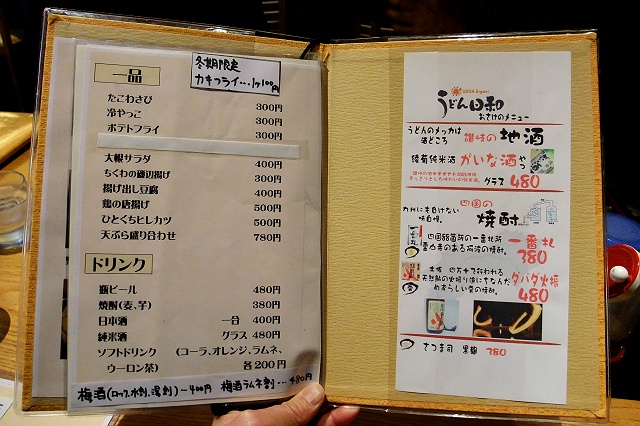 一品
冬期限定
カキフライ…1ヶ100円
たこわさび 300円
冷やっこ 300円
ポテトフライ 300円
大根サラダ 400円
ちくわの磯辺揚げ 300円
揚げ出し豆腐 400円
鶏の唐揚げ 500円
ひとくちヒレカツ 500円
天ぷら盛り合わせ 780円
ドリンク
瓶ビール 480円
焼酎(麦、芋) 380円
日本酒 一合 400円
純米酒 グラス 480円
ソフトドリンク (コーラ、オレンジ、ラムネ、
ウーロン茶) 各200円
梅酒(ロック、水割、湯割)…400円 梅酒ラムネ割…480円
UDON biyori
うどん日和
おさけのメニュー
うどんのメッカは
酒どころ 讃岐の地酒
綾菊純米酒 かいな酒 やつ
グラス 480
四国の
焼酎
カルにも負けない
味自慢。
四国88箇所の一番札所
霊山寺のある阿波の焼酎。
一番札
380
土佐 四万十で行われる
天然鮎の火振り漁にちなんだ
めずらしい栗の焼酎。
ダバダ火振
480
さつま司 黒麹 380